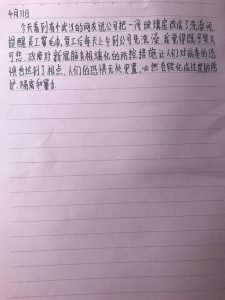 4月11日
今天看到有个武汉的网友说公司把一间玻璃房改成了洗澡间,
提醒员工带毛巾,复工后每天上午到公司先洗澡。我觉得既可笑又
可悲。政府对新冠肺炎极端化的防控措施让人们对病毒的恐
惧也达到了极点,人们的恐惧无处安置,必然会转化成过度的防
护、隔离和暴力。